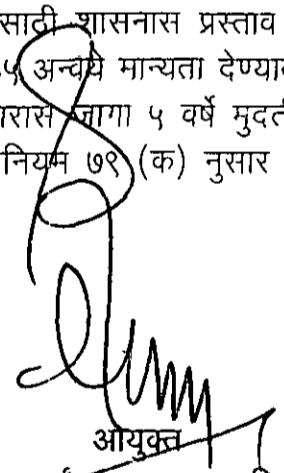 साठी शासनास प्रस्ताव
अन्वये मान्यता देण्या
जागा ५ वर्षे मुदत
नियम ७९ (क) नुसार
आयुक्त